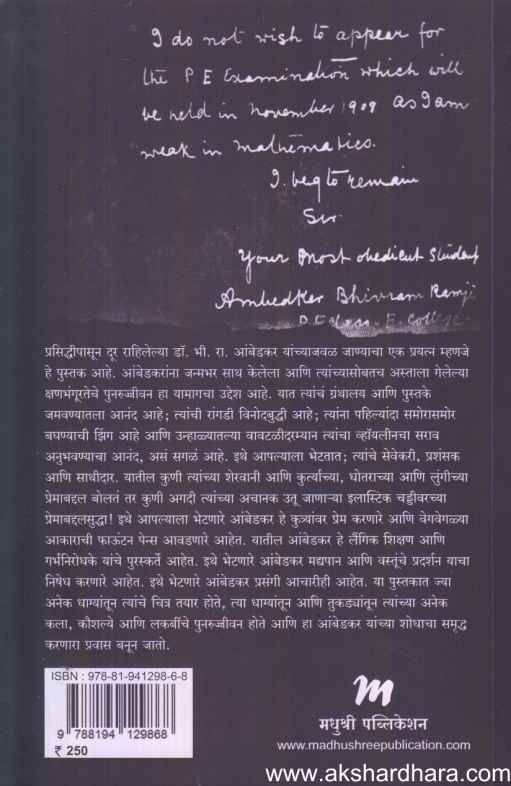 I do not wish to appear for
the P E Examination which will
be held in November 1909 as I am
weak in mathematics.
I. beg to remain
Sir
Your most obedient student
Ambedker Bhivram Ramji
P. E class - E. College
प्रसिद्धीपासून दूर राहिलेल्या डॉ. भी. रा. आंबेडकर यांच्याजवळ जाण्याचा एक प्रयत्न म्हणजे
हे पुस्तक आहे. आंबेडकरांना जन्मभर साथ केलेला आणि त्यांच्यासोबतच अस्ताला गेलेल्या
क्षणभंगूरतेचे पुनरुज्जीवन हा यामागचा उद्देश आहे. यात त्यांचं ग्रंथालय आणि पुस्तके
जमवण्यातला आनंद आहे; त्यांची रांगडी विनोदबुद्धी आहे; त्यांना पहिल्यांदा समोरासमोर
बघण्याची झिंग आहे आणि उन्हाळ्यातल्या वावटळीदरम्यान त्यांचा व्हॉयलीनचा सराव
अनुभवण्याचा आनंद, असं सगळं आहे. इथे आपल्याला भेटतात; त्यांचे सेवेकरी, प्रशंसक
आणि साथीदार. यातील कुणी त्यांच्या शेरवानी आणि कुर्त्याच्या, धोतराच्या आणि लुंगीच्या
प्रेमाबद्दल बोलतं तर कुणी अगदी त्यांच्या अचानक उतू जाणाऱ्या इलास्टिक चड्डीवरच्या
प्रेमाबद्दलसुद्धा! इथे आपल्याला भेटणारे आंबेडकर हे कुत्र्यांवर प्रेम करणारे आणि वेगवेगळ्या
आकाराची फाऊंटन पेन्स आवडणारे आहेत. यातील आंबेडकर हे लैंगिक शिक्षण आणि
गर्भनिरोधके यांचे पुरस्कर्ते आहेत. इथे भेटणारे आंबेडकर मद्यपान आणि वस्तूंचे प्रदर्शन याचा
निषेध करणारे आहेत. इथे भेटणारे आंबेडकर प्रसंगी आचारीही आहेत. या पुस्तकात ज्या
अनेक धाग्यांतून त्यांचे चित्र तयार होते, त्या धाग्यांतून आणि तुकड्यांतून त्यांच्या अनेक
कला, कौशल्ये आणि लकबींचे पुनरुज्जीवन होते आणि हा आंबेडकर यांच्या शोधाचा समृद्ध
करणारा प्रवास बनून जातो.
ISBN : 978-81-941298-6-8
9 788194 129868
₹ 250
m
मधुश्री पब्लिकेशन
www.madhushreepublication.com
www.akshardhara.com